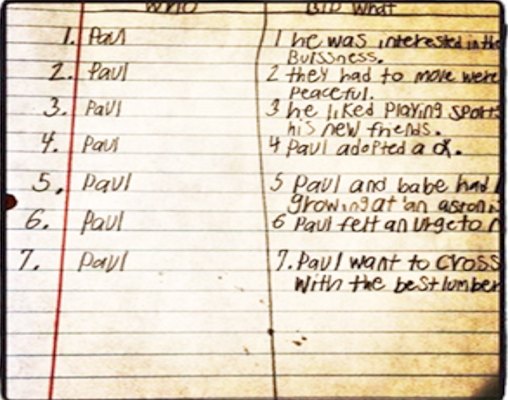 WHO DID What
1. Paul 1 he was interested in the
Buissness.
2. Paul 2 they had to move were
Peaceful.
3. Paul 3 he liked Playing sports
his new friends.
4. Paul 4 Paul adopted a ox.
5. Paul 5 Paul and babe had
growing at an astoni
6. Paul 6 Paul felt an urge to
7. Paul 7. Paul want to cross
with the best lumber